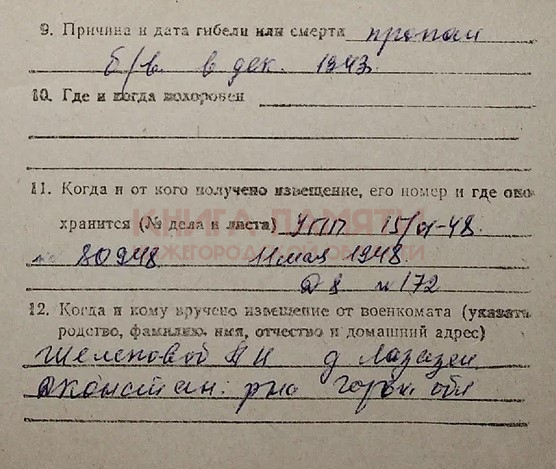 9. Причина и дата гибели или смерти пропал
б/в. в дек. 1943.
10. Где и когда похоронен
11. Когда и от кого получено извещение, его номер и где оно
хранится (№ дела и листа) УПП 15/01-48.
КНИГА ПАМЯТИ
НИЖЕГОРОДСКОЙ ОБЛАСТИ
№ 80948 11 мая 1948
Д 8 № 172
12. Когда и кому вручено извещение от военкомата (указать
родство, фамилию, имя, отчество и домашний адрес)
Шелеповой д Лазазеи
констан. р-на Горьк обл